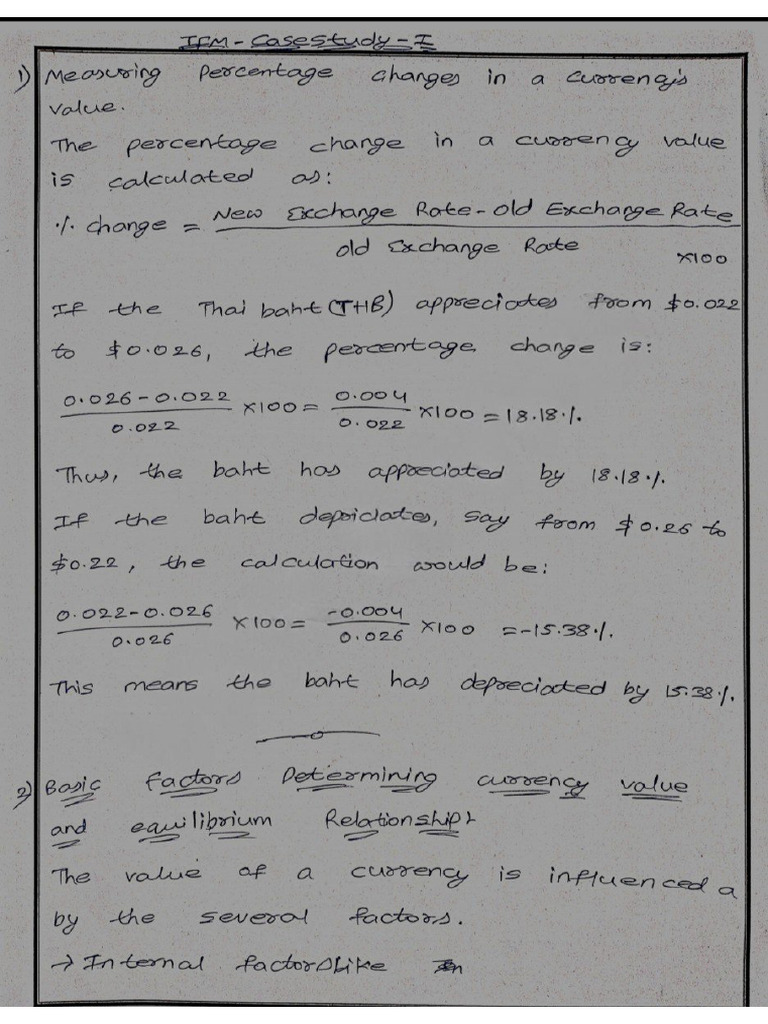 IFM - Casestudy - I
1) Measuring percentage changes in a currency's
value.
The percentage change in a currency value
is calculated as:
% change = New Exchange Rate - old Exchange Rate
old Exchange Rate
×100
If the Thai baht (THB) appreciates from $0.022
to $0.026, the percentage change is:
0.026-0.022 ×100 = 0.004 ×100 = 18.18%.
0.022 0.022
Thus, the baht has appreciated by 18.18%.
If the baht depriciates, say from $0.26 to
$0.22, the calculation would be:
0.022-0.026 ×100 = -0.004 ×100 = -15.38%.
0.026 0.026
This means the baht has depreciated by 15.38%.
2) Basic factors Determining currency value
and equilibrium Relationship
The value of a currency is influenced a
by the several factors.
→ Internal factorslike